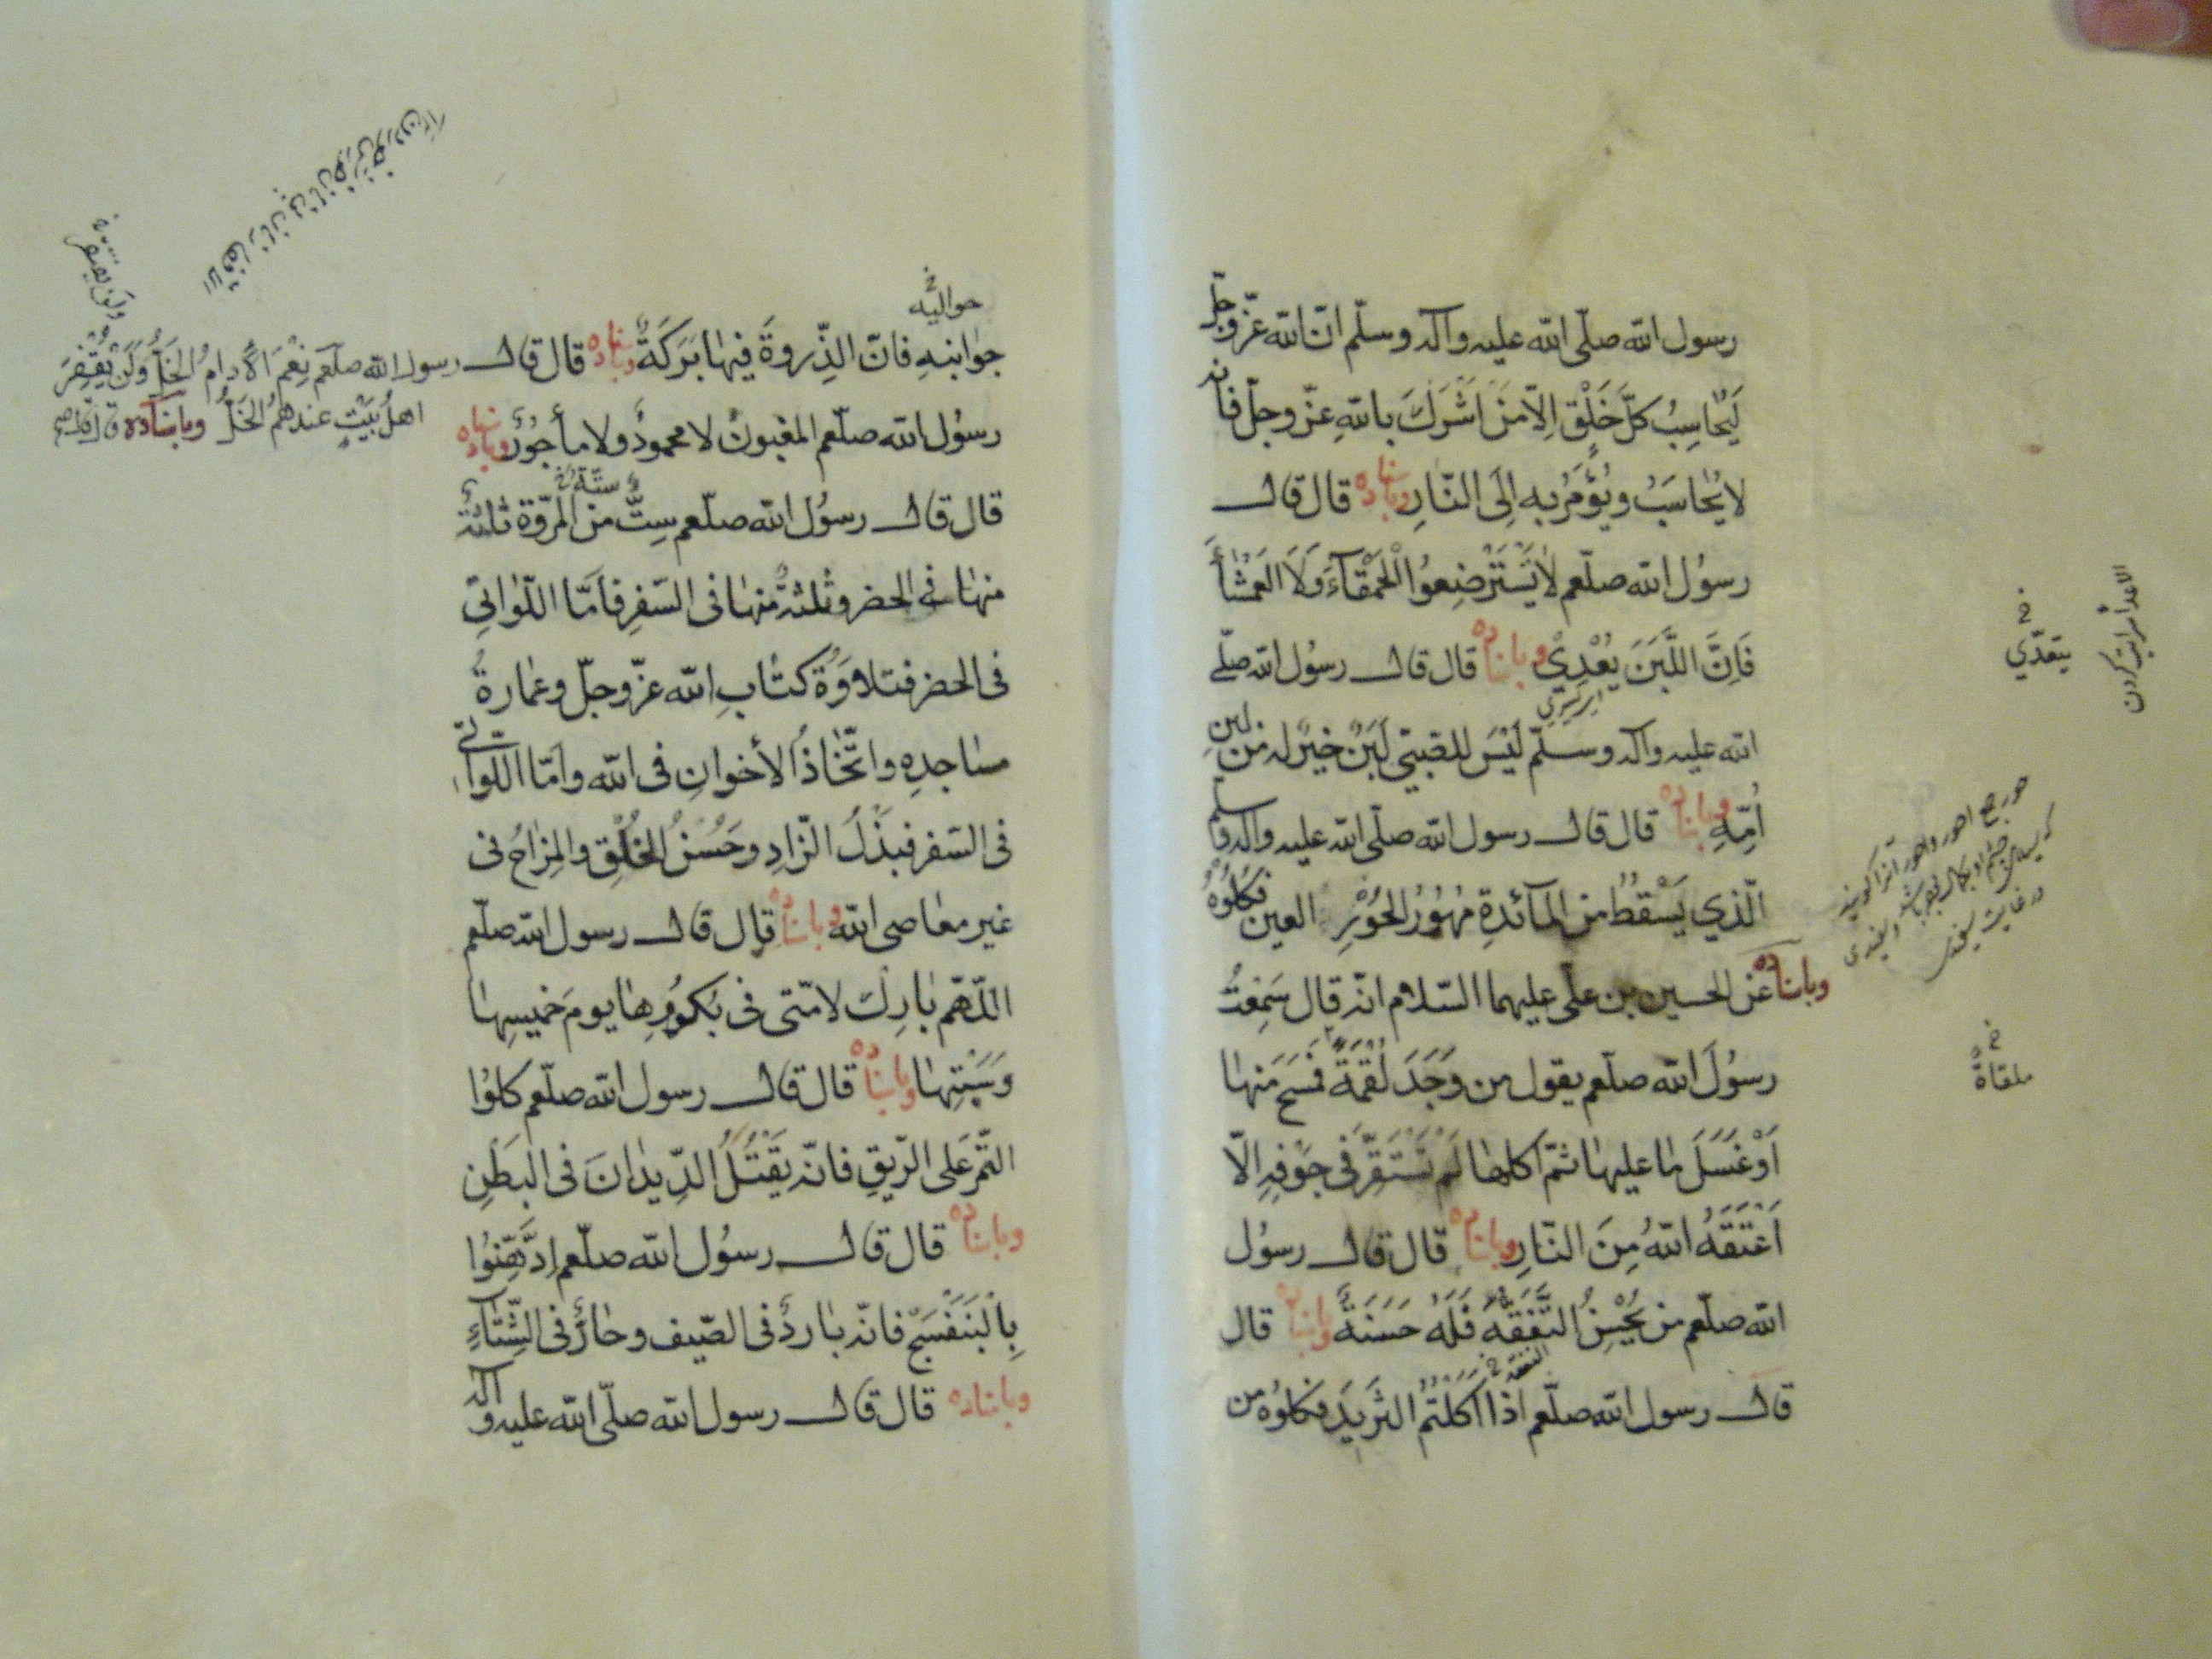 رسول الله صلّى الله عليه وآله وسلّم انّ الله عزّ وجلّ
يُحاسِبُ كلَّ خَلْقٍ اِلّا مَنْ اَشْرَكَ بالله عزّ وجلّ فانه
لا يُحاسَبُ ويُؤمَرُ به اِلَى النّارِ وباسناده قال قال
رسوُل الله صلّعم لا تَسْتَرْضِعوُا الْحَمْقآءَ وَلَا العَمْشٰآءَ
فَاِنَّ اللَّبَنَ يُعْدِي وباسناده قال قال رسوُل الله صلّى
الله عليه وآله وسلّم لَيْسَ للصّبيّ لَبَنٌ خيرٌ له من لبنِ
اُمِّهِ وباسناده قال قال رسول الله صلّى الله عليه وآله وسلم
الّذي يَسْقُطُ من المآئدةِ مُهُوُرُ الحوُرِ العين فكلوُهُ
وباسناده عن الحسين بن علي عليهما السّلام انّه قال سَمِعْتُ
رسوُلَ الله صلّعم يقول من وَجَدَ لُقمَةً فمَسَحَ منها
اَوْ غَسَلَ ما عليها ثمّ اكلها لم تَسْتَقِرّ في جَوْفِهِ اِلّا
اَعْتَقَهُ اللهُ مِنَ النّارِ وباسناده قال قال رسوُل
الله صلّعم من يُحْسِنُ النَّفَقَةَ فَلَهُ حَسَنَةٌ وباسناده قال
النفقة خ
قال رسول الله صلّعم اذا اكلتُم الثّريدَ فكلوُه من
يتعدّي خ
ملقاةً خ
حواليه خ
جوانبهِ فانّ الذِّروةَ فيها بَرَكَةٌ وباسناده قال قال رسول الله صلّعم نِعْمَ الاِدامُ الخَلُّ وَلَنْ يُقْفِرَ
اهلُ بَيْتٍ عندهمُ الخَلُّ وباسناده قال قال
رسوُل الله صلّعم المغبونُ لا محمودٌ ولا مأجوُرٌ وباسناده
ستّة خ
قال قال رسوُل الله صلّعم سِتٌّ من المروّة ثلثةٌ
منها في الحضر وثلثةٌ منها في السّفرِ فاَمّا اللّواتي
في الحضر فتلاوَةُ كتابِ الله عزّ وجلّ وعمارةُ
مساجدِهِ واتّخاذُ الأخوانِ في الله واَمّا اللّواتي
في السّفر فبذْلُ الزّادِ وحُسْنُ الخُلْقِ والمِزاحُ في
غير معاصي الله وباسناده قال قال رسول الله صلّعم
اللّهمّ بارِك لامّتي في بُكوُرِها يومَ خميسِها
وسَبْتِها وباسناده قال قال رسول الله صلّعم كلوُا
التّمر عَلى الرّيقِ فانّه يَقْتُلُ الدّيدانَ في البَطْنِ
وباسناده قال قال رسوُل الله صلّعم اِدَّهِنوُا
بِالْبَنَفْسَجِ فانّه باردٌ في الصّيف وحارٌّ في الشِّتآءِ
وباسناده قال قال رسول الله صلّى الله عليه وآله